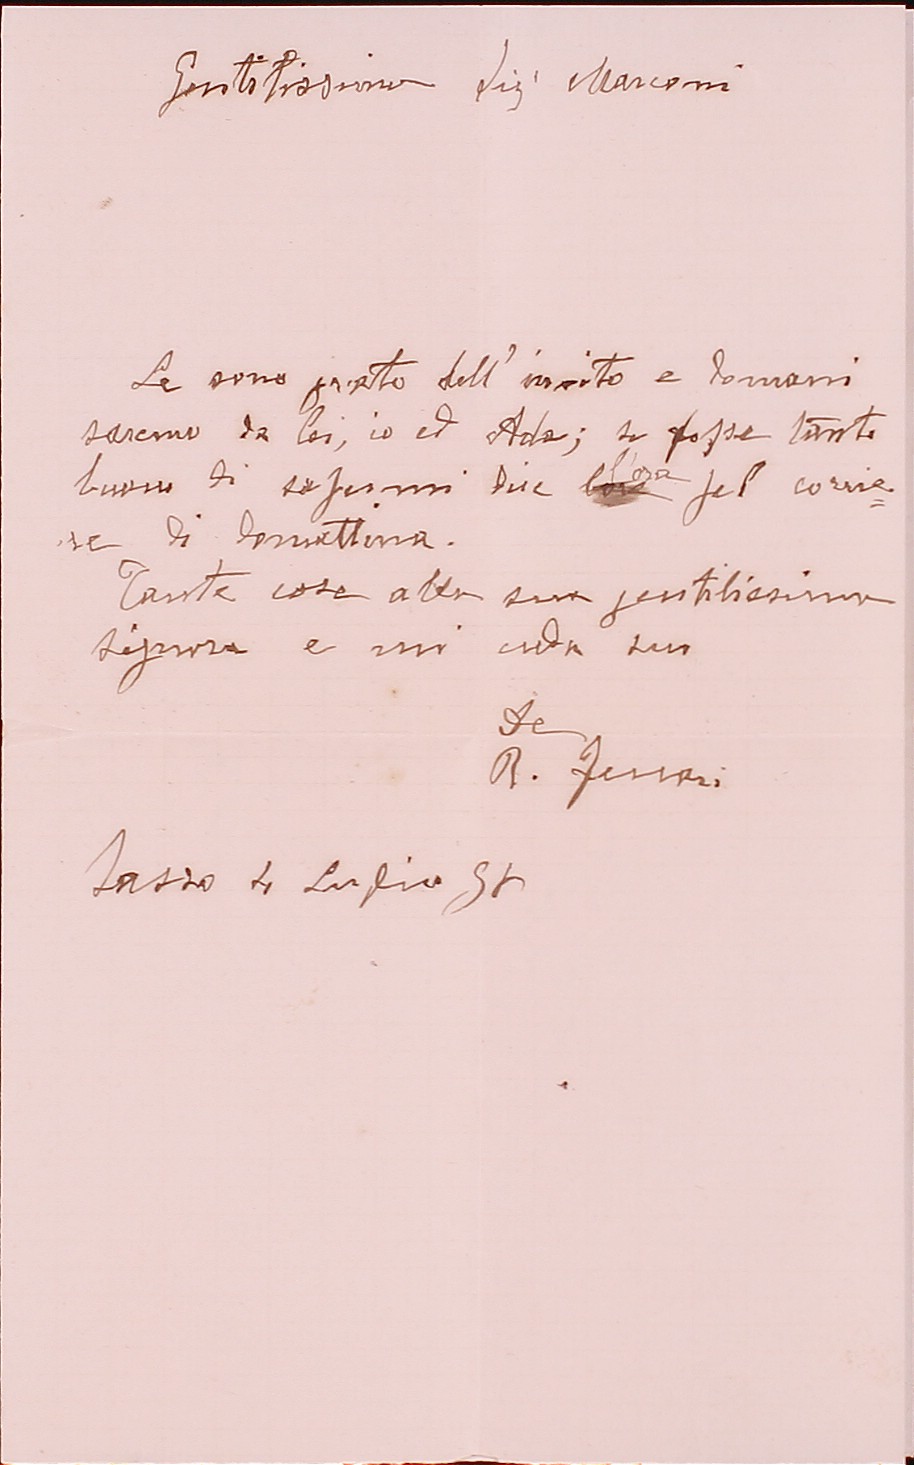 Gentilissimo Sig.r Marconi
Le sono grato dell'invito e domani
saremo da lei, io ed Ada; se fosse tanto
buono di sapermi dire l'ora pel corrie=
re di domattina.
Tante cose alla sua gentilissima
signora e mi creda suo
R. Ferrari
Sasso Luglio